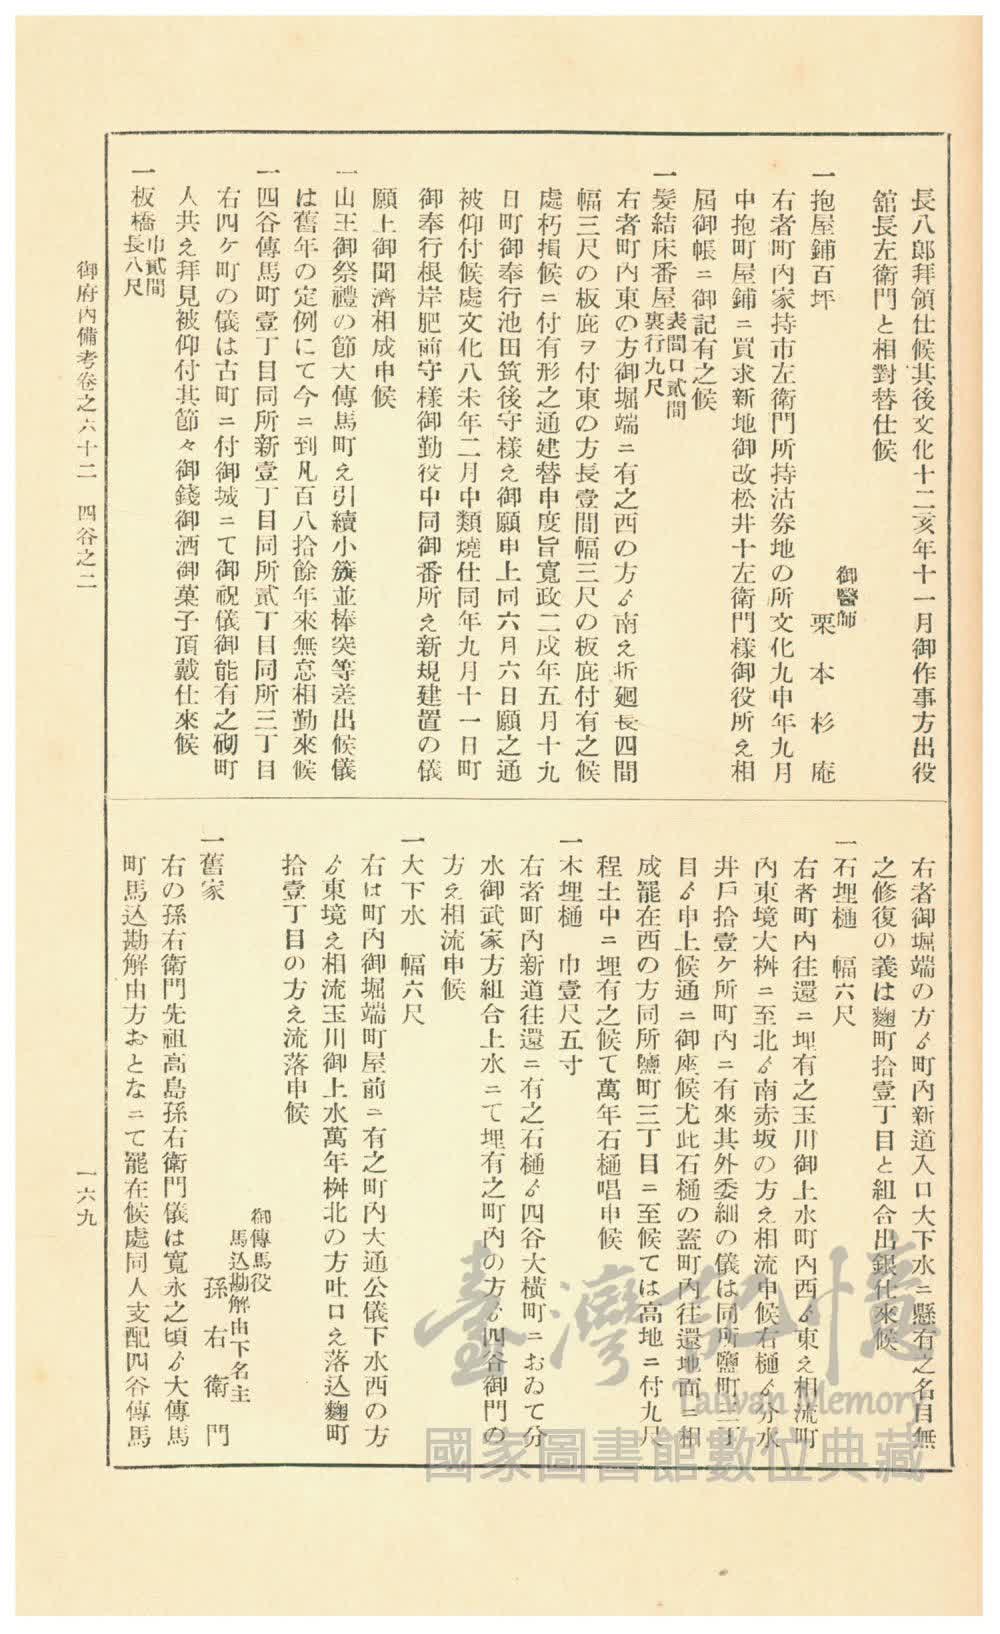 長八郎拜領仕候其後文化十二亥年十一月御作事方出役
舘長左衛門と相對替仕候
御醫師
栗本杉庵
一抱屋鋪百坪
右者町內家持市左衛門所持沽券地の所文化九申年九月
中抱町屋鋪ニ買求新地御改松井十左衛門樣御役所え相
屆御帳ニ御記有之候
一髮結床番屋表間口貳間裏行九尺
右者町內東の方御堀端ニ有之西の方ゟ南え折廻長四間
幅三尺の板庇ヲ付東の方長壹間幅三尺の板庇付有之候
處朽損候ニ付有形之通建替申度旨寬政二戌年五月十九
日町御奉行池田筑後守樣え御願申上同六月六日願之通
被仰付候處文化八未年二月中類燒仕同年九月十一日町
御奉行根岸肥前守樣御勤役中同御番所え新規建置の儀
願上御聞濟相成申候
一山王御祭禮の節大傳馬町え引續小籏並棒突等差出候儀
は舊年の定例にて今ニ到凡百八拾餘年來無怠相勤來候
一四谷傳馬町壹丁目同所新壹丁目同所貳丁目同所三丁目
右四ケ町の儀は古町ニ付御城ニて御祝儀御能有之砌町
人共え拜見被仰付其節々御錢御酒御菓子頂戴仕來候
一板橋巾貳間長八尺
右者御堀端の方ゟ町內新道入口大下水ニ懸有之名目無
之修復の義は麴町拾壹丁目と組合出銀仕來候
一石埋樋 幅六尺
右者町內往還ニ埋有之玉川御上水町內西ゟ東え相流町
內東境大桝ニ至北ゟ南赤坂の方え相流申候右樋ゟ分水
井戶拾壹ケ所町內ニ有來其外委細の儀は同所鹽町三丁
目ゟ申上候通ニ御座候尤此石樋の蓋町內往還地面ニ相
成罷在西の方同所鹽町三丁目ニ至候ては高地ニ付九尺
程土中ニ埋有之候て萬年石樋唱申候
一木埋樋 巾壹尺五寸
右者町內新道往還ニ有之石樋ゟ四谷大橫町ニおゐて分
水御武家方組合上水ニて埋有之町內の方ゟ四谷御門の
方え相流申候
一大下水 幅六尺
右は町內御堀端町屋前ニ有之町內大通公儀下水西の方
ゟ東境え相流玉川御上水萬年桝北の方吐口え落込麴町
拾壹丁目の方え流落申候
御傳馬役
馬込勘解由下名主
孫右衛門
一舊家
右の孫右衛門先祖高島孫右衛門儀は寬永之頃ゟ大傳馬
町馬込勘解由方おとなニて罷在候處同人支配四谷傳馬
御府內備考卷之六十二 四谷之二
一六九
臺灣記憶
Taiwan Memory
國家圖書館數位典藏